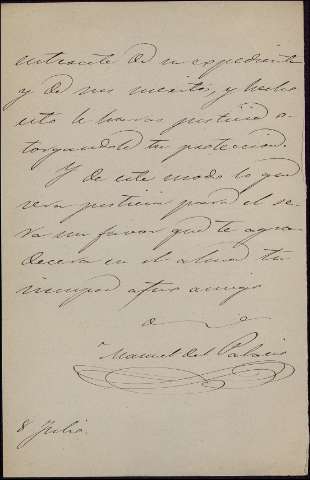 enterarte de su expediente
y de sus meritos, y hecho
esto le haras justicia o-
torgandole tu proteccion.
Y de este modo lo que
sera justicia para el se-
ra un favor que te agra-
decera en el alma tu
siempre afmo amigo
Manuel del Palacio
8 Julio